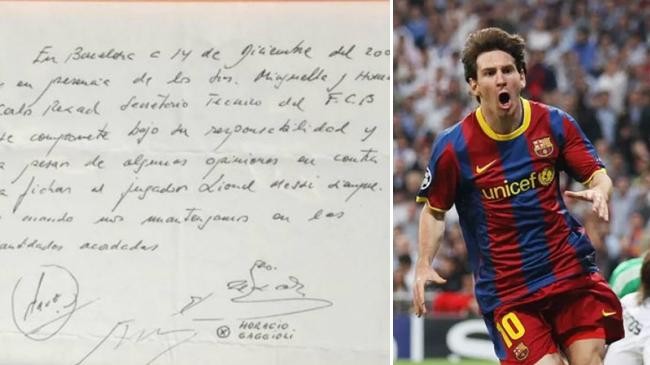 En Barcelona a 14 de Diciembre del 200
en presencia de los Srs. Minguella y
Secretario Técnico del F.C.B
compromete bajo su responsabilidad y
pesar de algunas opiniones en contra
a fichar al jugador Lionel Messi
mantengamos en las
acordadas
HORACIO
GAGGIOLI
unicef
10